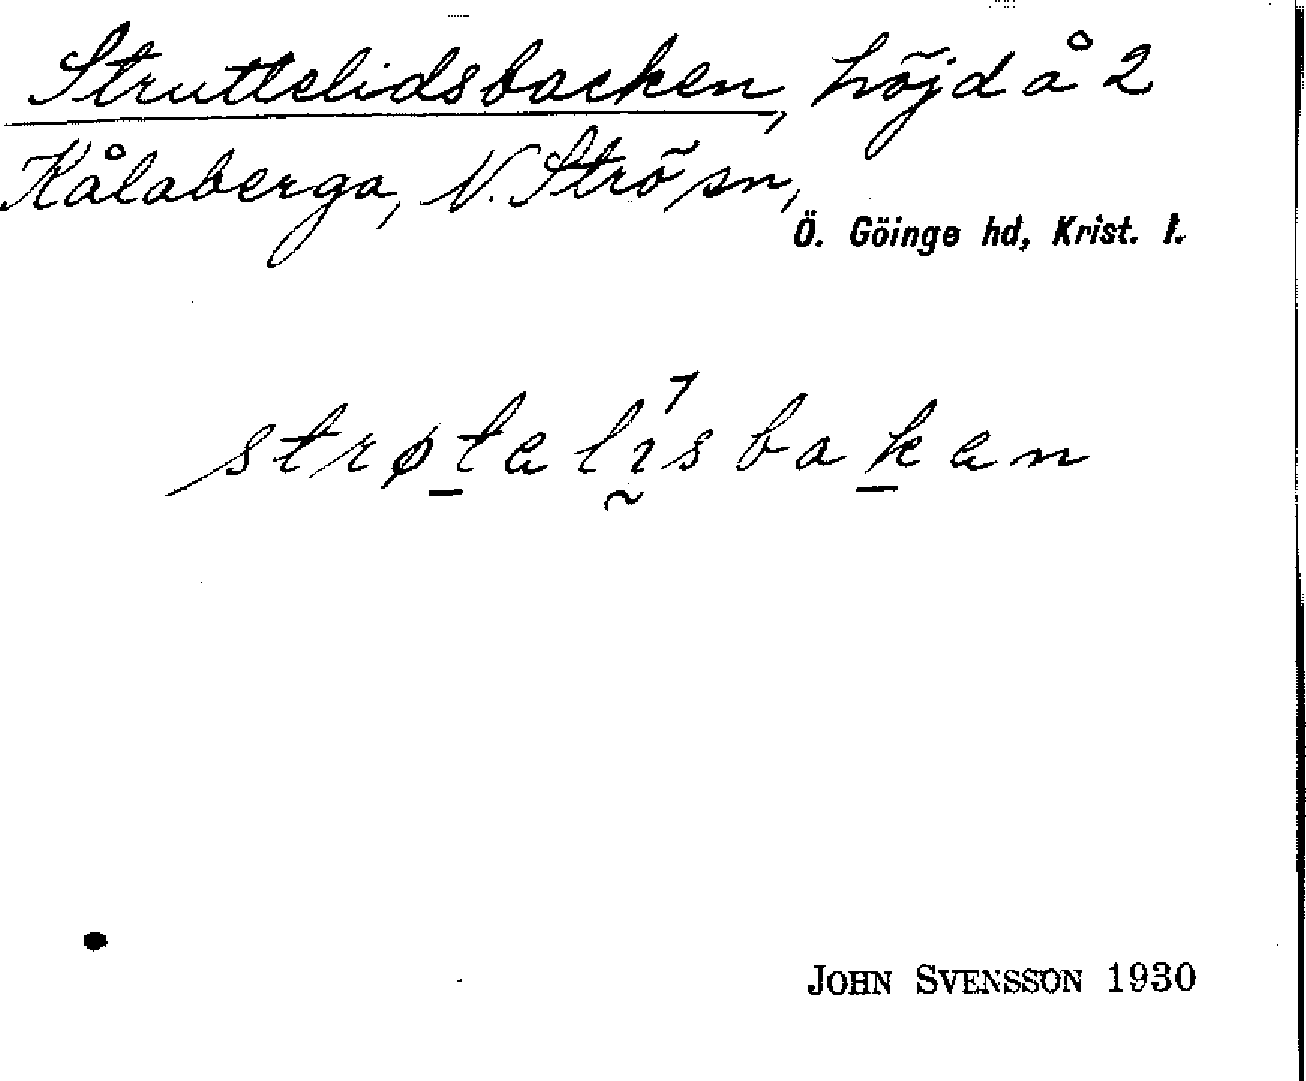 Struttelidsbacken, höjd å 2
Kålaberga, N. Strö sn,
Ö. Göinge hd, Krist. l.
strøtalı̰⁷sbakan
JOHN SVENSSON 1930